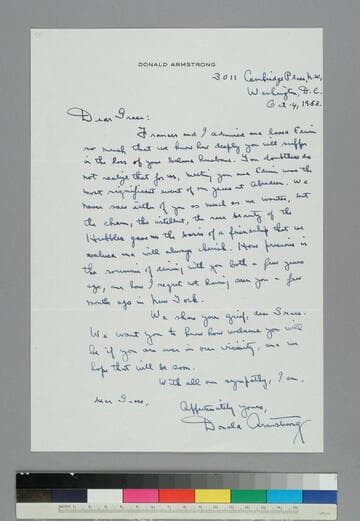 DONALD ARMSTRONG
3011 Cambridge Place, N.W.,
Washington, D.C.
Oct. 4, 1953.
Dear Grace:
Frances and I admired and loved Edwin
so much that we know how deeply you will suffer
in the loss of your beloved husband. You doubtless do
not realize that for us, meeting you and Edwin was the
most significant event of our years at Aberdeen. We
never saw either of you as much as we wanted, but
the charm, the intellect, the rare beauty of the
Hubbles gave us the basis of a friendship that we
realized we will always cherish. How precious is
the souvenir of dining with you both a few years
ago, and how I regret not having seen you a few
months ago in New York.
We share your grief, dear Grace.
We want you to know how welcome you will
be if you are ever in our vicinity, and we
hope that will be soon.
With all our sympathy, I am,
dear Grace,
Affectionately yours,
Donald Armstrong